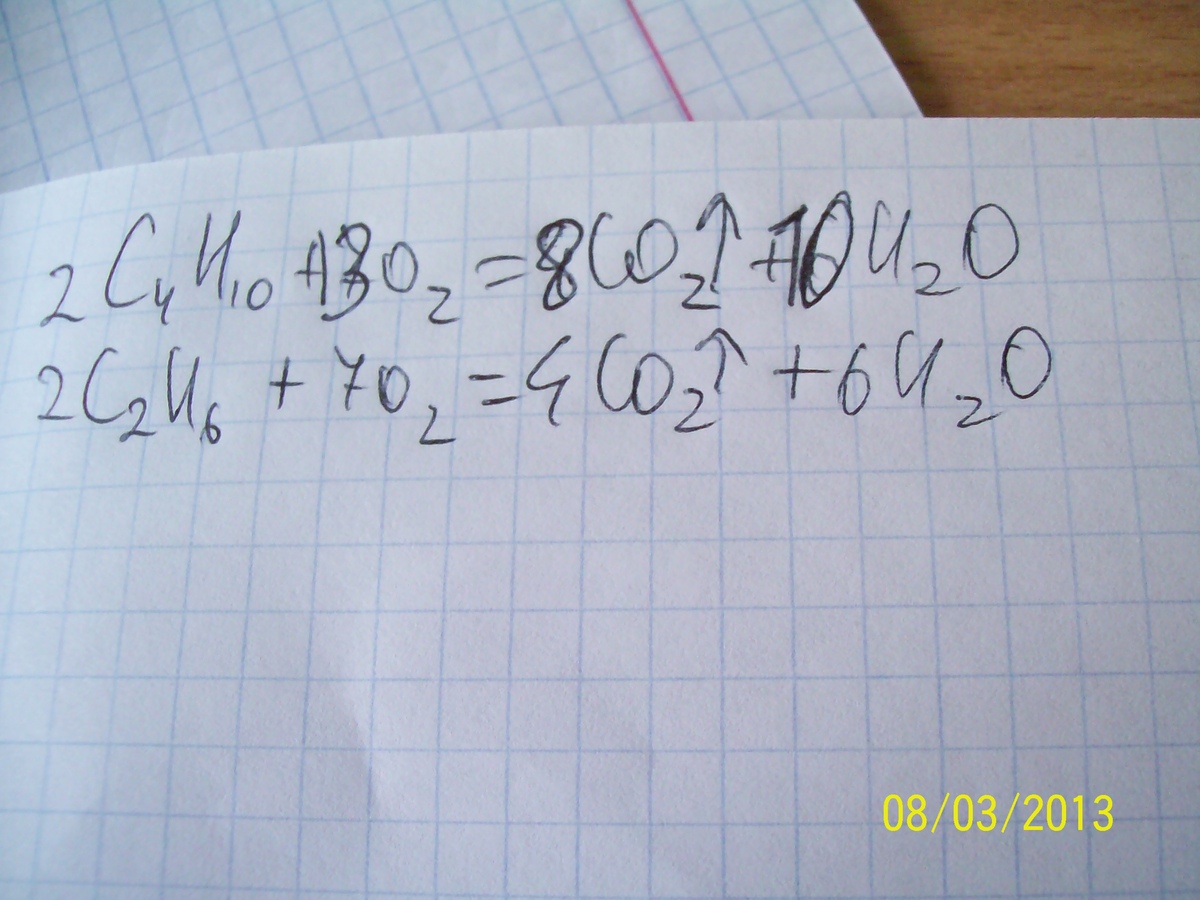 2C₄H₁₀ + 13O₂ = 8CO₂↑ + 10H₂O
2C₂H₆ + 7O₂ = 4CO₂↑ + 6H₂O
08/03/2013